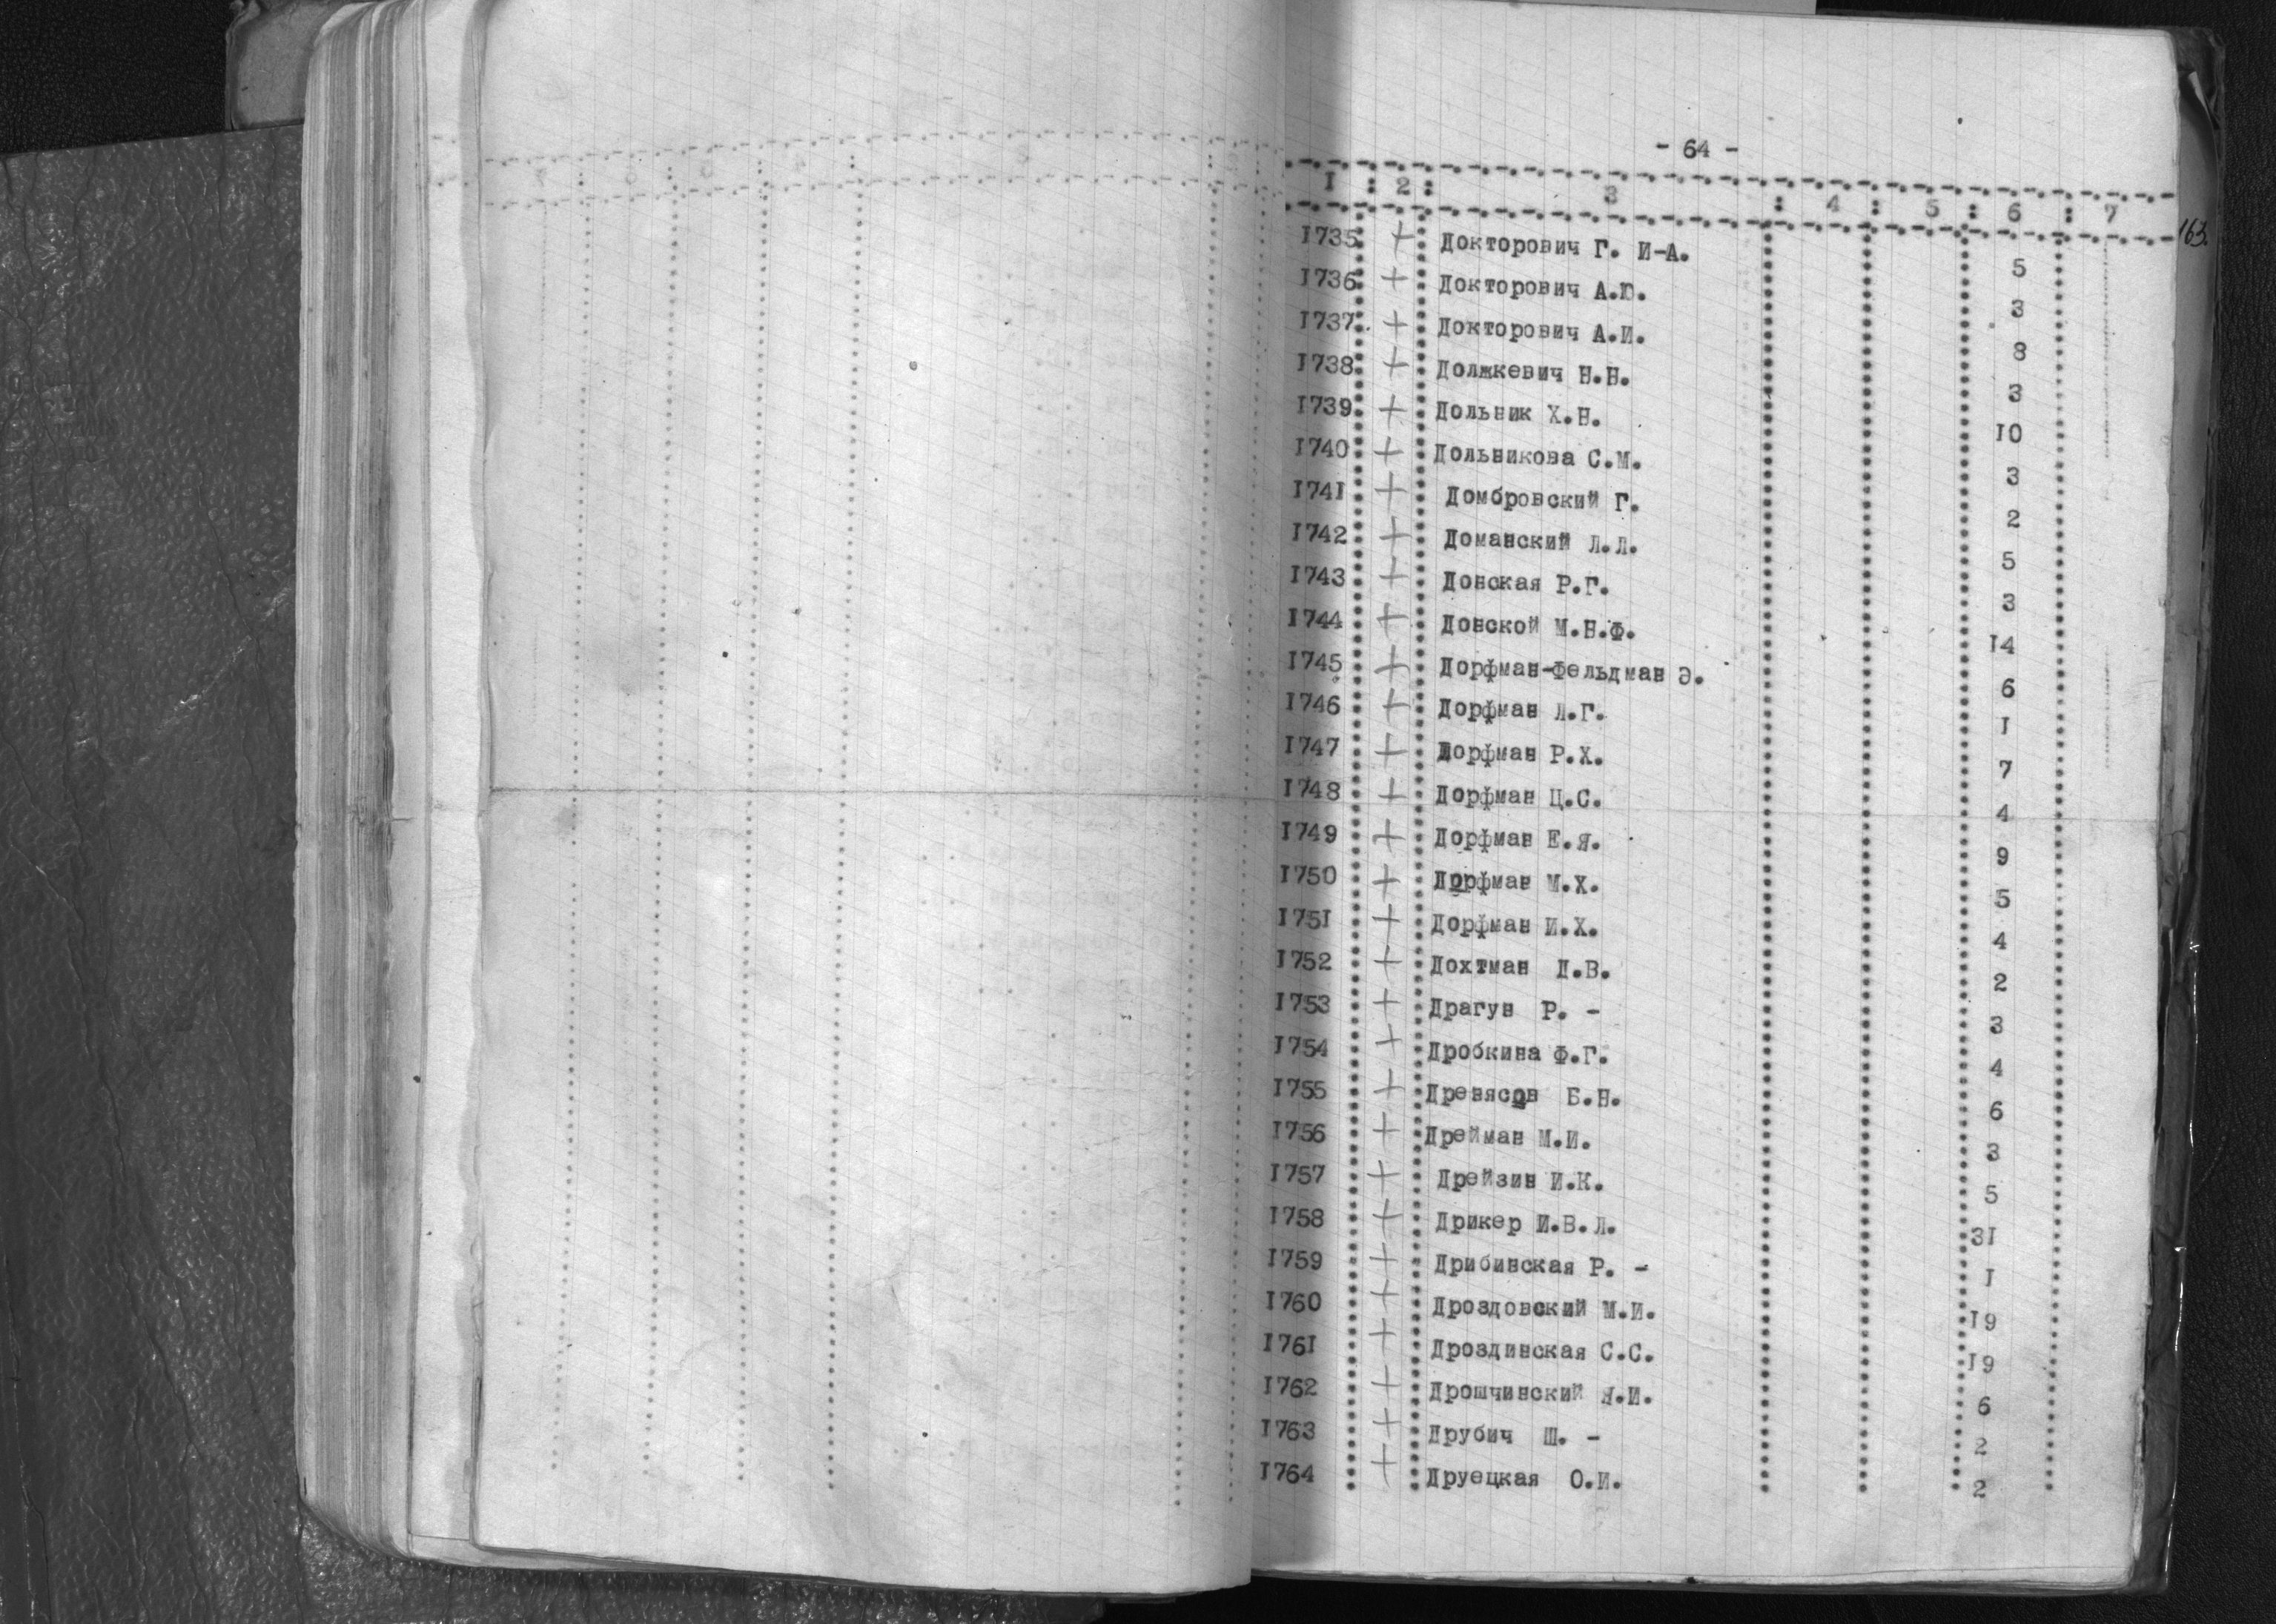 - 64 -
1 : 2 : 3 : 4 : 5 : 6 : 7
163.
1735 + Докторович Г. И-А. 5
1736 + Докторович А.Ю. 3
1737 + Докторович А.И. 8
1738 + Должкевич Н.Н. 3
1739 + Дольник Х.Н. 10
1740 + Дольникова С.М. 3
1741 + Домбровский Г. 2
1742 + Доманский Л.Л. 5
1743 + Донская Р.Г. 3
1744 + Донской М.Н.Ф. 14
1745 + Дорфман-Фельдман Э. 6
1746 + Дорфман Л.Г. 1
1747 + Дорфман Р.Х. 7
1748 + Дорфман Ц.С. 4
1749 + Дорфман Е.Я. 9
1750 + Дорфман М.Х. 5
1751 + Дорфман И.Х. 4
1752 + Дохтман Д.В. 2
1753 + Драгун Р. - 3
1754 + Дробкина Ф.Г. 4
1755 + Древясов Б.Н. 6
1756 + Дрейман М.И. 3
1757 + Дрейзин И.К. 5
1758 + Дрикер И.В.Л. 31
1759 + Дрибинская Р. - 1
1760 + Дроздовский М.И. 19
1761 + Дроздинская С.С. 19
1762 + Дрошчинский Я.И. 6
1763 + Друбич Ш. - 2
1764 + Друецкая О.И. 2